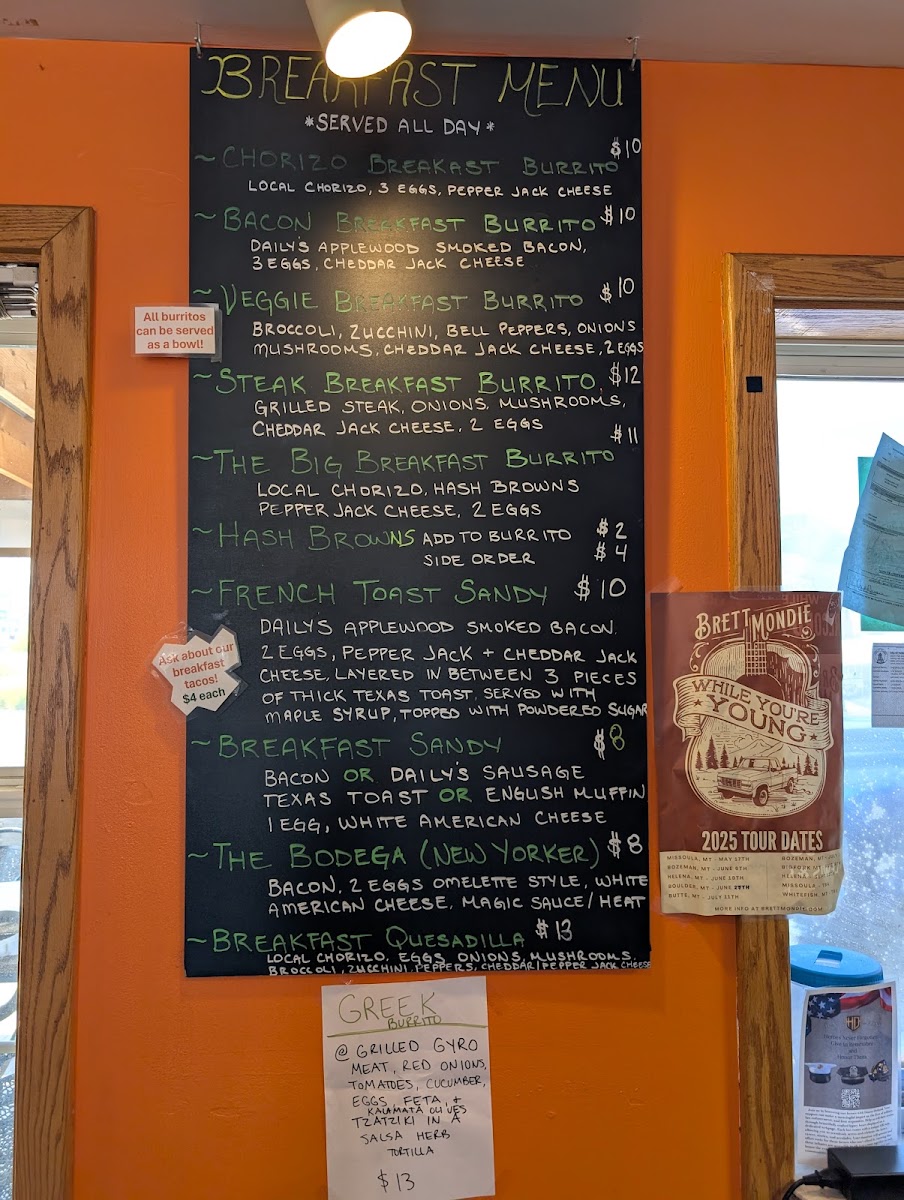 BREAKFAST MENU
*SERVED ALL DAY*
~CHORIZO BREAKAST BURRITO $10
LOCAL CHORIZO, 3 EGGS, PEPPER JACK CHEESE
~BACON BREAKFAST BURRITO $10
DAILY'S APPLEWOOD SMOKED BACON,
3 EGGS, CHEDDAR JACK CHEESE
~VEGGIE BREAKFAST BURRITO $10
BROCCOLI, ZUCCHINI, BELL PEPPERS, ONIONS
MUSHROOMS, CHEDDAR JACK CHEESE, 2 EGGS
All burritos
can be served
as a bowl!
~STEAK BREAKFAST BURRITO $12
GRILLED STEAK, ONIONS, MUSHROOMS,
CHEDDAR JACK CHEESE, 2 EGGS
~THE BIG BREAKFAST BURRITO $11
LOCAL CHORIZO, HASH BROWNS
PEPPER JACK CHEESE, 2 EGGS
~HASH BROWNS ADD TO BURRITO $2
SIDE ORDER $4
~FRENCH TOAST SANDY $10
DAILY'S APPLEWOOD SMOKED BACON.
2 EGGS, PEPPER JACK + CHEDDAR JACK
CHEESE, LAYERED IN BETWEEN 3 PIECES
OF THICK TEXAS TOAST. SERVED WITH
MAPLE SYRUP, TOPPED WITH POWDERED SUGAR
Ask about our
breakfast
tacos!
$4 each
~BREAKFAST SANDY $8
BACON OR DAILY'S SAUSAGE
TEXAS TOAST OR ENGLISH MUFFIN
1 EGG, WHITE AMERICAN CHEESE
~THE BODEGA (NEW YORKER) $8
BACON, 2 EGGS OMELETTE STYLE, WHITE
AMERICAN CHEESE, MAGIC SAUCE/HEAT
~BREAKFAST QUESADILLA $13
LOCAL CHORIZO, EGGS, ONIONS, MUSHROOMS.
BROCCOLI, ZUCCHINI, PEPPERS, CHEDDAR/PEPPER JACK CHEESE
GREEK
BURRITO
@ GRILLED GYRO
MEAT, RED ONIONS,
TOMATOES, CUCUMBER,
EGGS, FETA, +
KALAMATA OLIVES
TZATZIKI IN A
SALSA HERB
TORTILLA
$13
BRETT MONDIE
WHILE YOU'RE
YOUNG
2025 TOUR DATES
MISSOULA, MT - MAY 17TH
BOZEMAN, MT - JUNE 6TH
HELENA, MT - JUNE
BOULDER, MT - JUNE 27TH
BUTTE, MT - JULY 11TH
BOZEMAN, MT
HELENA
MISSOULA
WHITEFISH, MT
MORE INFO AT BRETTMONDIE.COM
HD